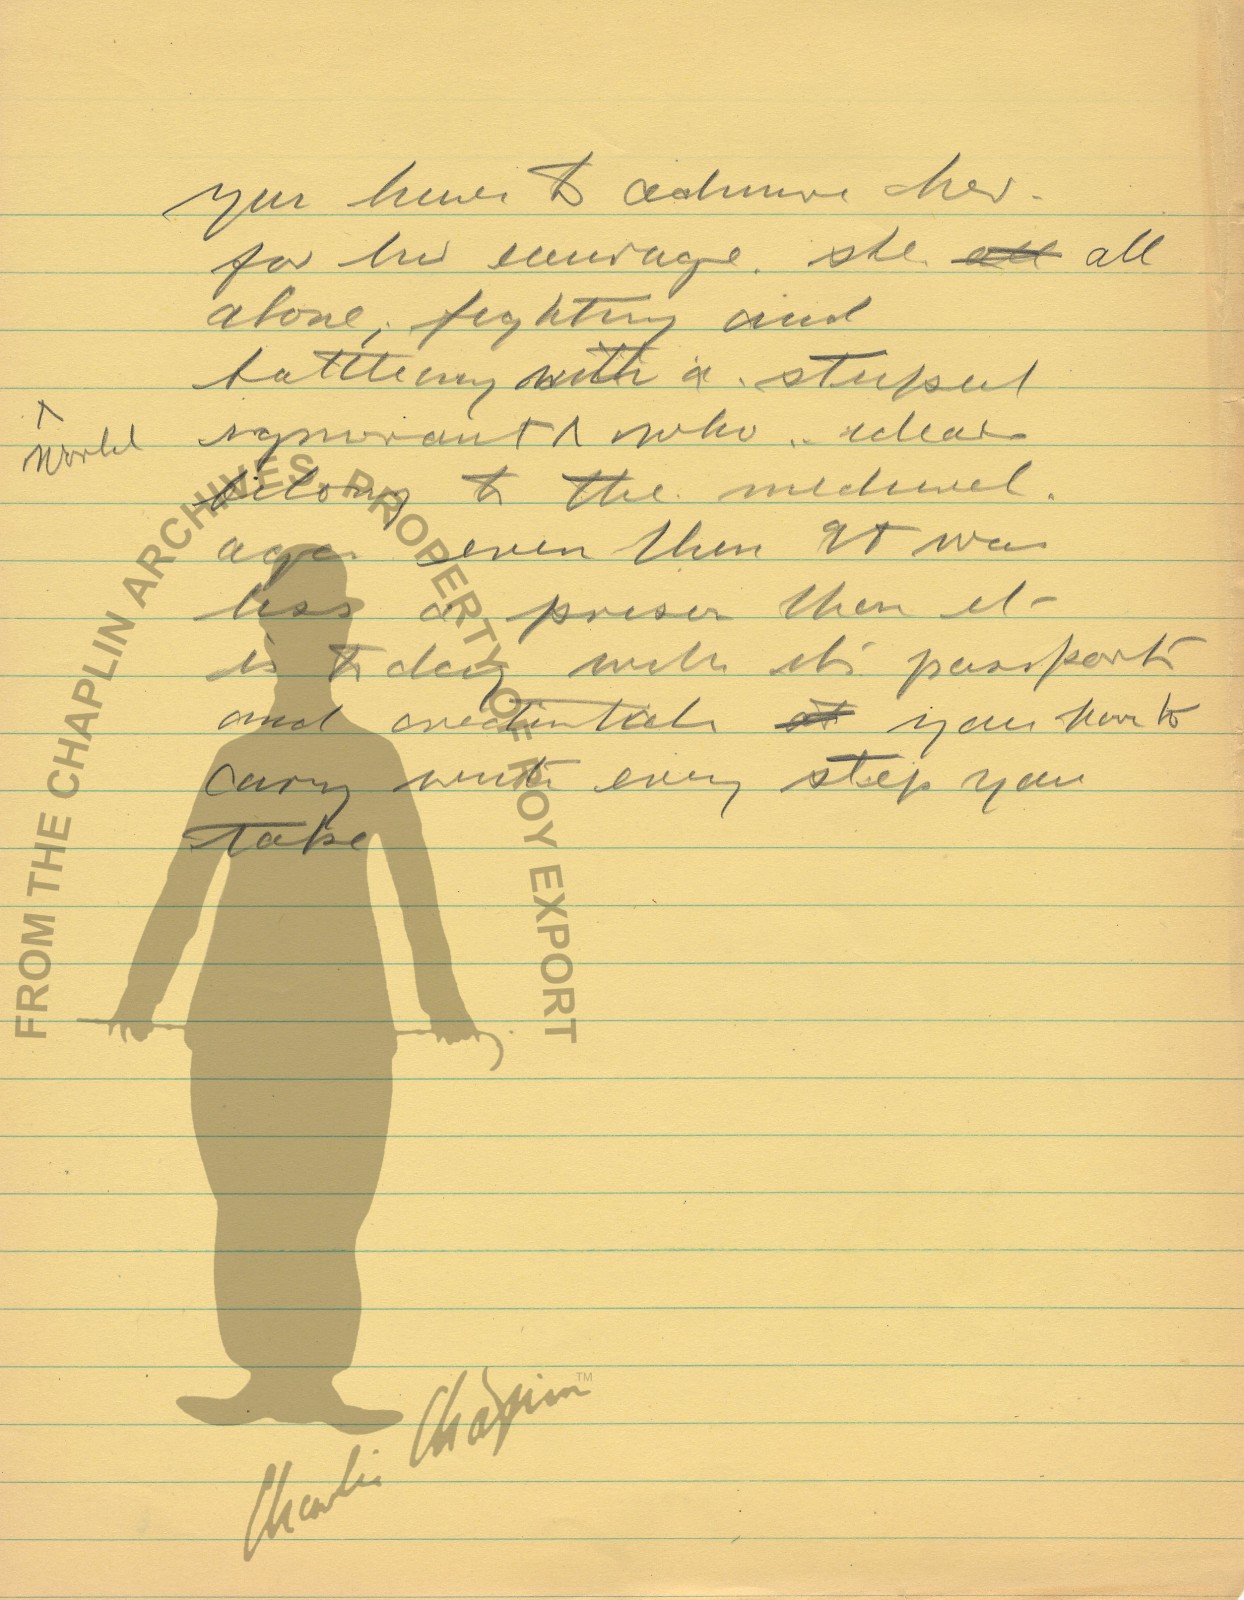 you have to admire her.
for her courage. she all all
alone, fighting and
battleing with a stupid
ignorant ^ who ideas
^
world
belong to the medieval.
ages even then It was
less a prison then it
is today with its passports
and credentials at you have to
carry with every step you
take
FROM THE CHAPLIN ARCHIVES, PROPERTY OF ROY EXPORT
Charlie Chaplin™